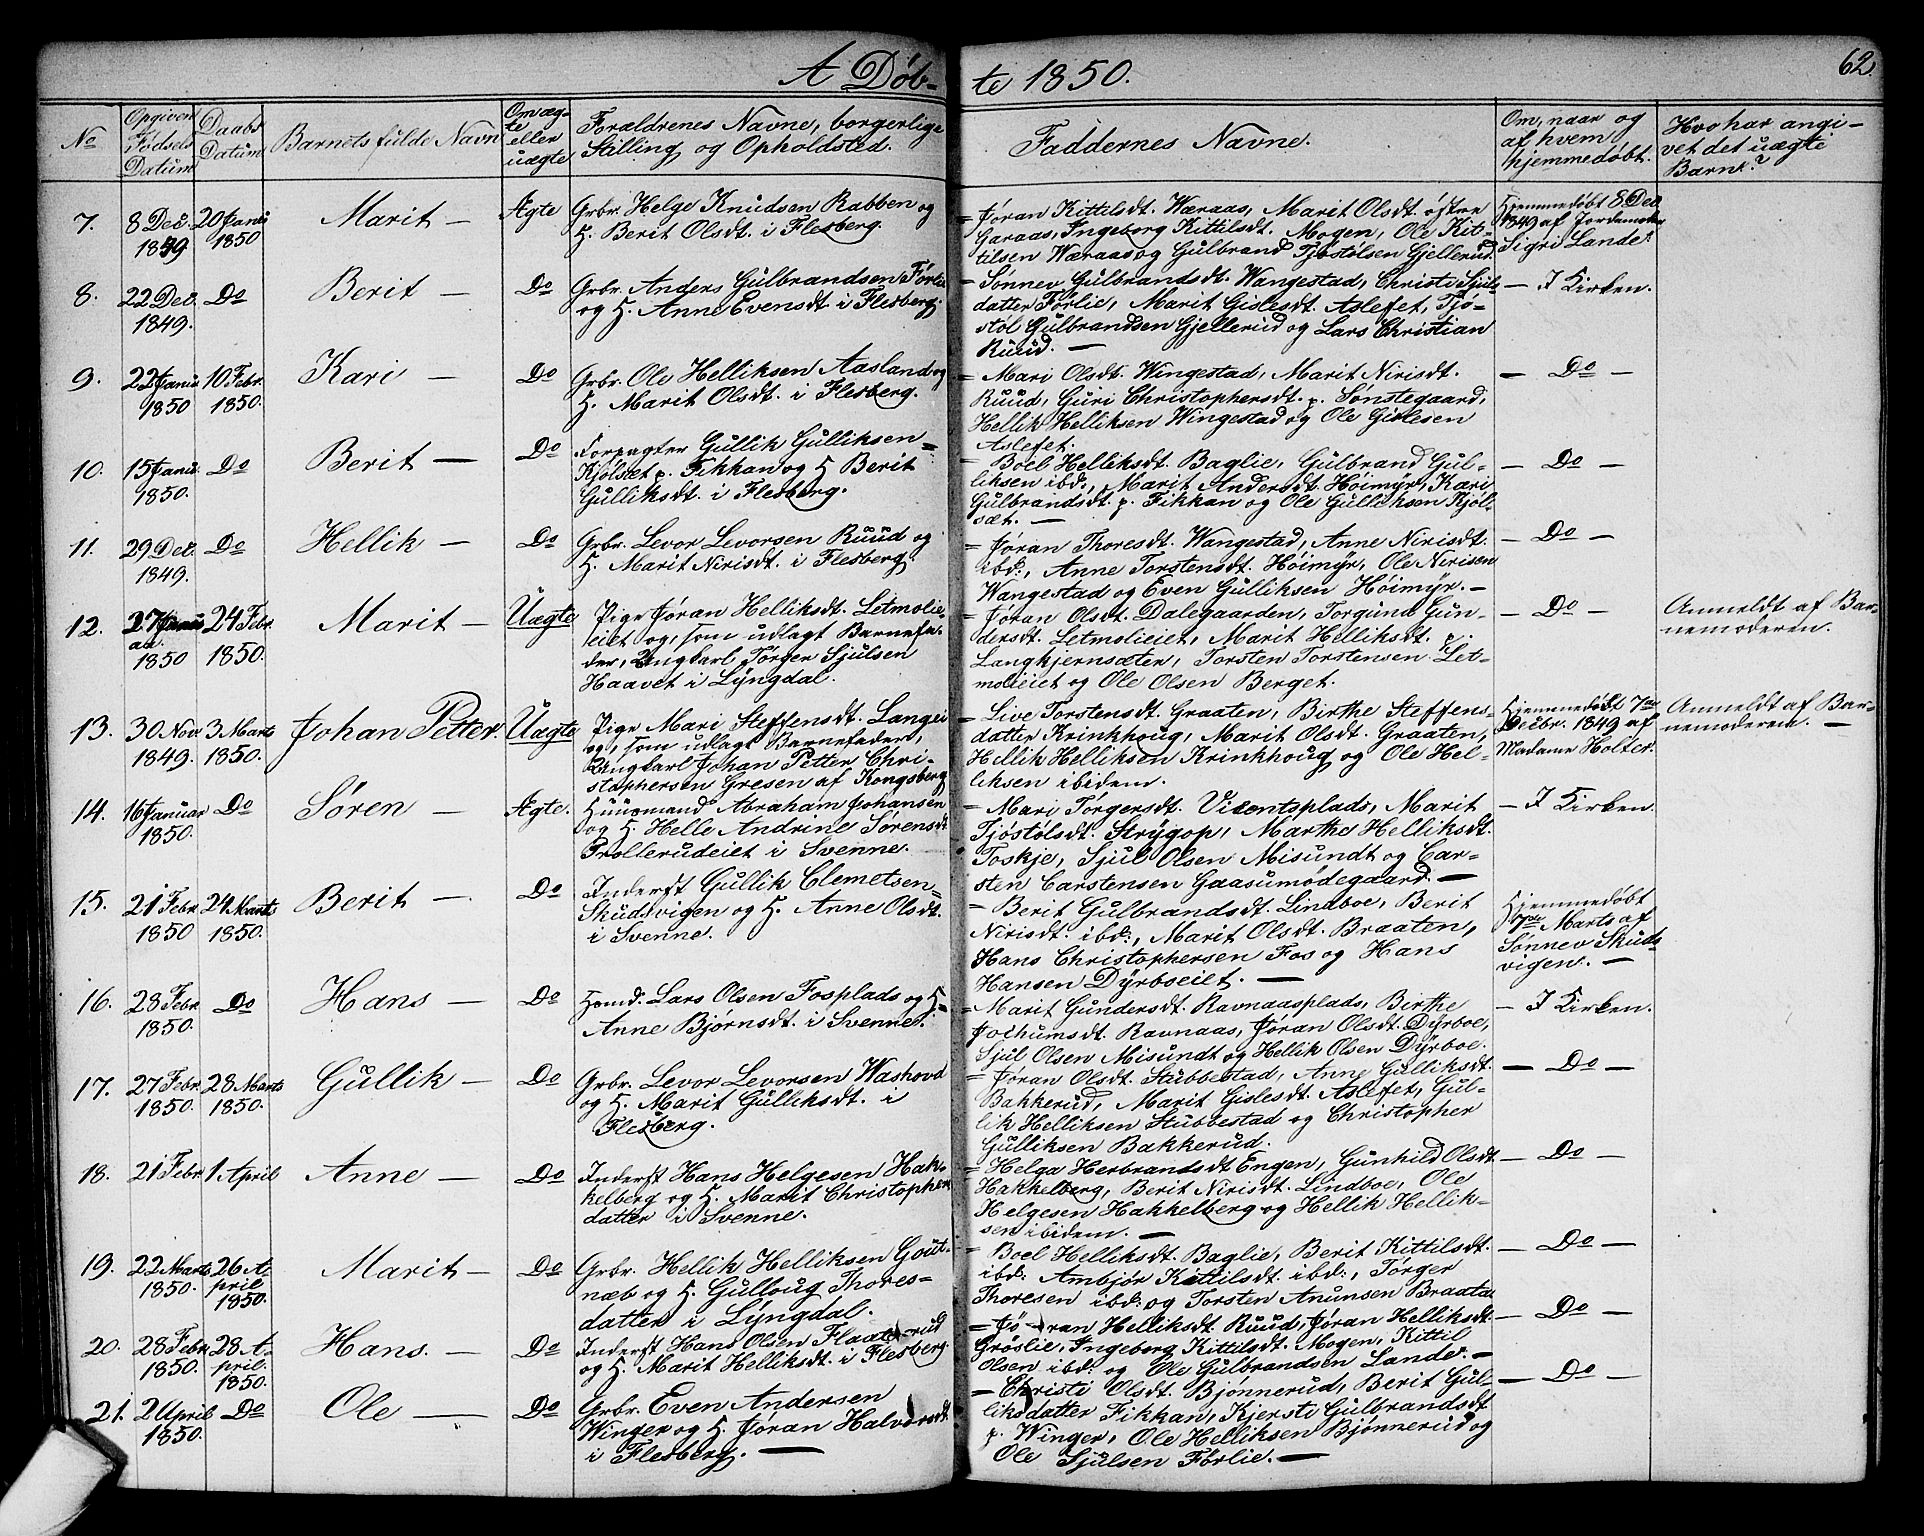 A Døb-
te 1850.
62.
No
Opgiven Fødsels Datum
Daabs Datum
Barnets fulde Navn
Om ægte eller uægte
Forældrenes Navne, borgerlige
Stilling og Opholdsted.
Faddernes Navne.
Om, naar og
af hvem
hjemmedøbt.
Hvo har angi-
vet det uægte
Barn?
7. 8 Dec. 1849 20 Janu 1850 Marit — Ægte
Grbr. Helge Knudsen Rabben og
H. Berit Olsdt. i Flesberg.
= Jøran Kittilsdt. Wæraas, Marit Olsdt. østre
Garaas, Ingeborg Kittilsdt. Mogen, Ole Kit-
tilsen Wæraas og Gulbrand Tjøstolsen Gjellerud.
Hjemmedøbt 8 Dec.
1849 af Jordemoder
Sigri Lande.
8. 22 Dec. 1849. Do Berit — Do
Grbr. Anders Gulbrandsen Førlie
og H. Anne Evensdt. i Flesberg.
= Sønnev Gulbrandsdt. Wangestad, Christi Sjuls-
datter Førlie, Marit Gislesdt. Aslefet, Tjø-
stol Gulbrandsen Gjellerud og Lars Christian
Ruud. —
— I Kirken.
9. 22 Janu. 1850 10 Febr. 1850. Kari — Do
Grbr. Ole Helliksen Aasland og
H. Marit Olsdt. i Flesberg.
= Mari Olsdt. Wingestad, Marit Nirisdt.
Ruud, Guri Christophersdt. p. Sønstegaard,
Hellik Helliksen Wingestad og Ole Gislesen
Aslefet.
— Do —
10. 15 Janu. 1850. Do Berit — Do
Forpagter Gullik Gulliksen
Kjølsæt p. Fikkan og H. Berit
Gulliksdt. i Flesberg.
= Boel Helliksdt. Baglie, Gulbrand Gul-
liksen ibd:, Marit Andersdt. Høimyr, Kari
Gulbrandsdt. p. Fikkan og Ole Gulliksen Kjøl-
sæt. —
— Do —
11. 29 Dec. 1849. Do Hellik — Do
Grbr. Levor Levorsen Ruud og
H. Marit Nirisdt. i Flesberg.
= Jøran Thoresdt. Wangestad, Anne Nirisdt.
ibd:, Anne Torstensdt. Høimyr, Ole Nirisen
Wangestad og Even Gulliksen Høimyr. —
— Do —
12. 27 Janu 1850 24 Febr. 1850. Marit — Uægte
Pige Jøran Helliksdt. Letmolie-
eiet og, som udlagt Barnefa-
der, Ungkarl Tørger Sjulsen
Haavet i Lyngdal.
= Jøran Olsdt. Dalegaarden, Torgund Gun-
dersdt. Letmolieiet, Marit Helliksdt. p.
Langkjernsæter, Torsten Torstensen Let-
molieiet og Ole Olsen Berget.
— Do —
Anmeldt af Bar-
nemoderen.
13. 30 Nov. 1849. 3 Marts 1850. Johan Petter. Uægte
Pige Mari Steffensdt. Langei
og, som udlagt Barnefader,
Ungkarl Johan Petter Chri-
stophersen Gresen af Kongsberg
= Live Torstensdt. Graaten, Birthe Steffens-
datter Krinkhoug, Marit Olsdt. Graaten,
Hellik Helliksen Krinkhoug og Ole Hel-
liksen ibidem.
Hjemmedøbt 7de
Decbr. 1849 af
Madame Holter.
Anmeldt af Bar-
nemoderen. —
14. 16 Januar 1850. Do Søren — Ægte.
Huusmand Abraham Johansen
og H. Helle Andrine Sørensdt.
Prollerudeiet i Svenne.
= Mari Tørgersdt. Vicentsplads, Marit
Tjøstølsdt. Strygop, Marthe Helliksdt.
Toskje, Sjul Olsen Misundt og Car-
sten Carstensen Gaasumødegaard. —
— I Kirken.
15. 21 Febr. 1850 24 Marts 1850. Berit — Do
Inderst Gullik Clemetsen
Skudsvigen og H. Anne Olsdt.
i Svenne.
= Berit Gulbrandsdt. Lindboe, Berit
Nirisdt. ibd:, Marit Olsdt. Braaten,
Hans Christophersen Fos og Hans
Hansen Dyrboeiet. —
Hjemmedøbt
7de Marts af
Sønnev Skuds-
vigen. —
16. 28 Febr. 1850. Do Hans — Do
Hsmd. Lars Olsen Fosplads og H.
Anne Bjørnsdt. i Svenne.
= Marit Gundersdt. Ravnaasplads, Birthe
Jochumsdt. Ravnaas, Jøran Olsdt. Dyrboe,
Sjul Olsen Misundt og Hellik Olsen Dyrboe.
— I Kirken.
17. 27 Febr. 1850. 28 Marts 1850. Gullik — Do
Grbr. Levor Levorsen Washovd
og H. Marit Gulliksdt. i
Flesberg.
= Jøran Olsdt. Stubbestad, Anne Gulliksdt.
Bakkerud, Marit Gislesdt. Aslefet, Gul-
lik Helliksen Stubbestad og Christopher
Gulliksen Bakkerud.
— Do —
18. 21 Febr. 1 April Anne — Do
Inderst Hans Helgesen Hak-
kelberg og H. Marit Christopher
datter i Svenne.
= Helga Herbrandsdt Engen, Gunhild Olsdt
Hakkelberg, Berit Nirisdt. Lindboe, Ole
Helgesen Hakkelberg og Hellik Hellik-
sen ibidem. —
— Do —
19. 22 Marts 1850. 26 April 1850. Marit — Do
Grbr. Hellik Helliksen Gout-
næb og H. Gulloug Thores-
datter i Lyngdal.
= Boel Helliksdt. Baglie, Berit Kittilsdt.
ibd: Ambjør Kittilsdt. ibd:, Tørger
Thoresen ibd: og Torsten Anunsen Braata.
— Do —
20. 28 Febr. 1850. 28 April. 1850. Hans. — Do
Inderst Hans Olsen Flaate-rud
og H. Marit Helliksdt. i Flesberg.
= Jøran Helliksdt. Ruud, Jøran Helliksdt.
Grøslie, Ingeborg Kittilsdt. Mogen, Kittil
Olsen ibd: og Ole Gulbrandsen Lande. —
— Do —
21. 2 April 1850. Do Ole — Do
Grbr. Even Andersen
Winger og H. Jøran Halvorsdt.
i Flesberg. —
= Christi Olsdt. Bjønnerud, Berit Gul-
liksdatter Fikkan, Kjersti Gulbrandsdt
p. Winger, Ole Helliksen Bjønnerud og
Ole Sjulsen Førlie. —
— Do —